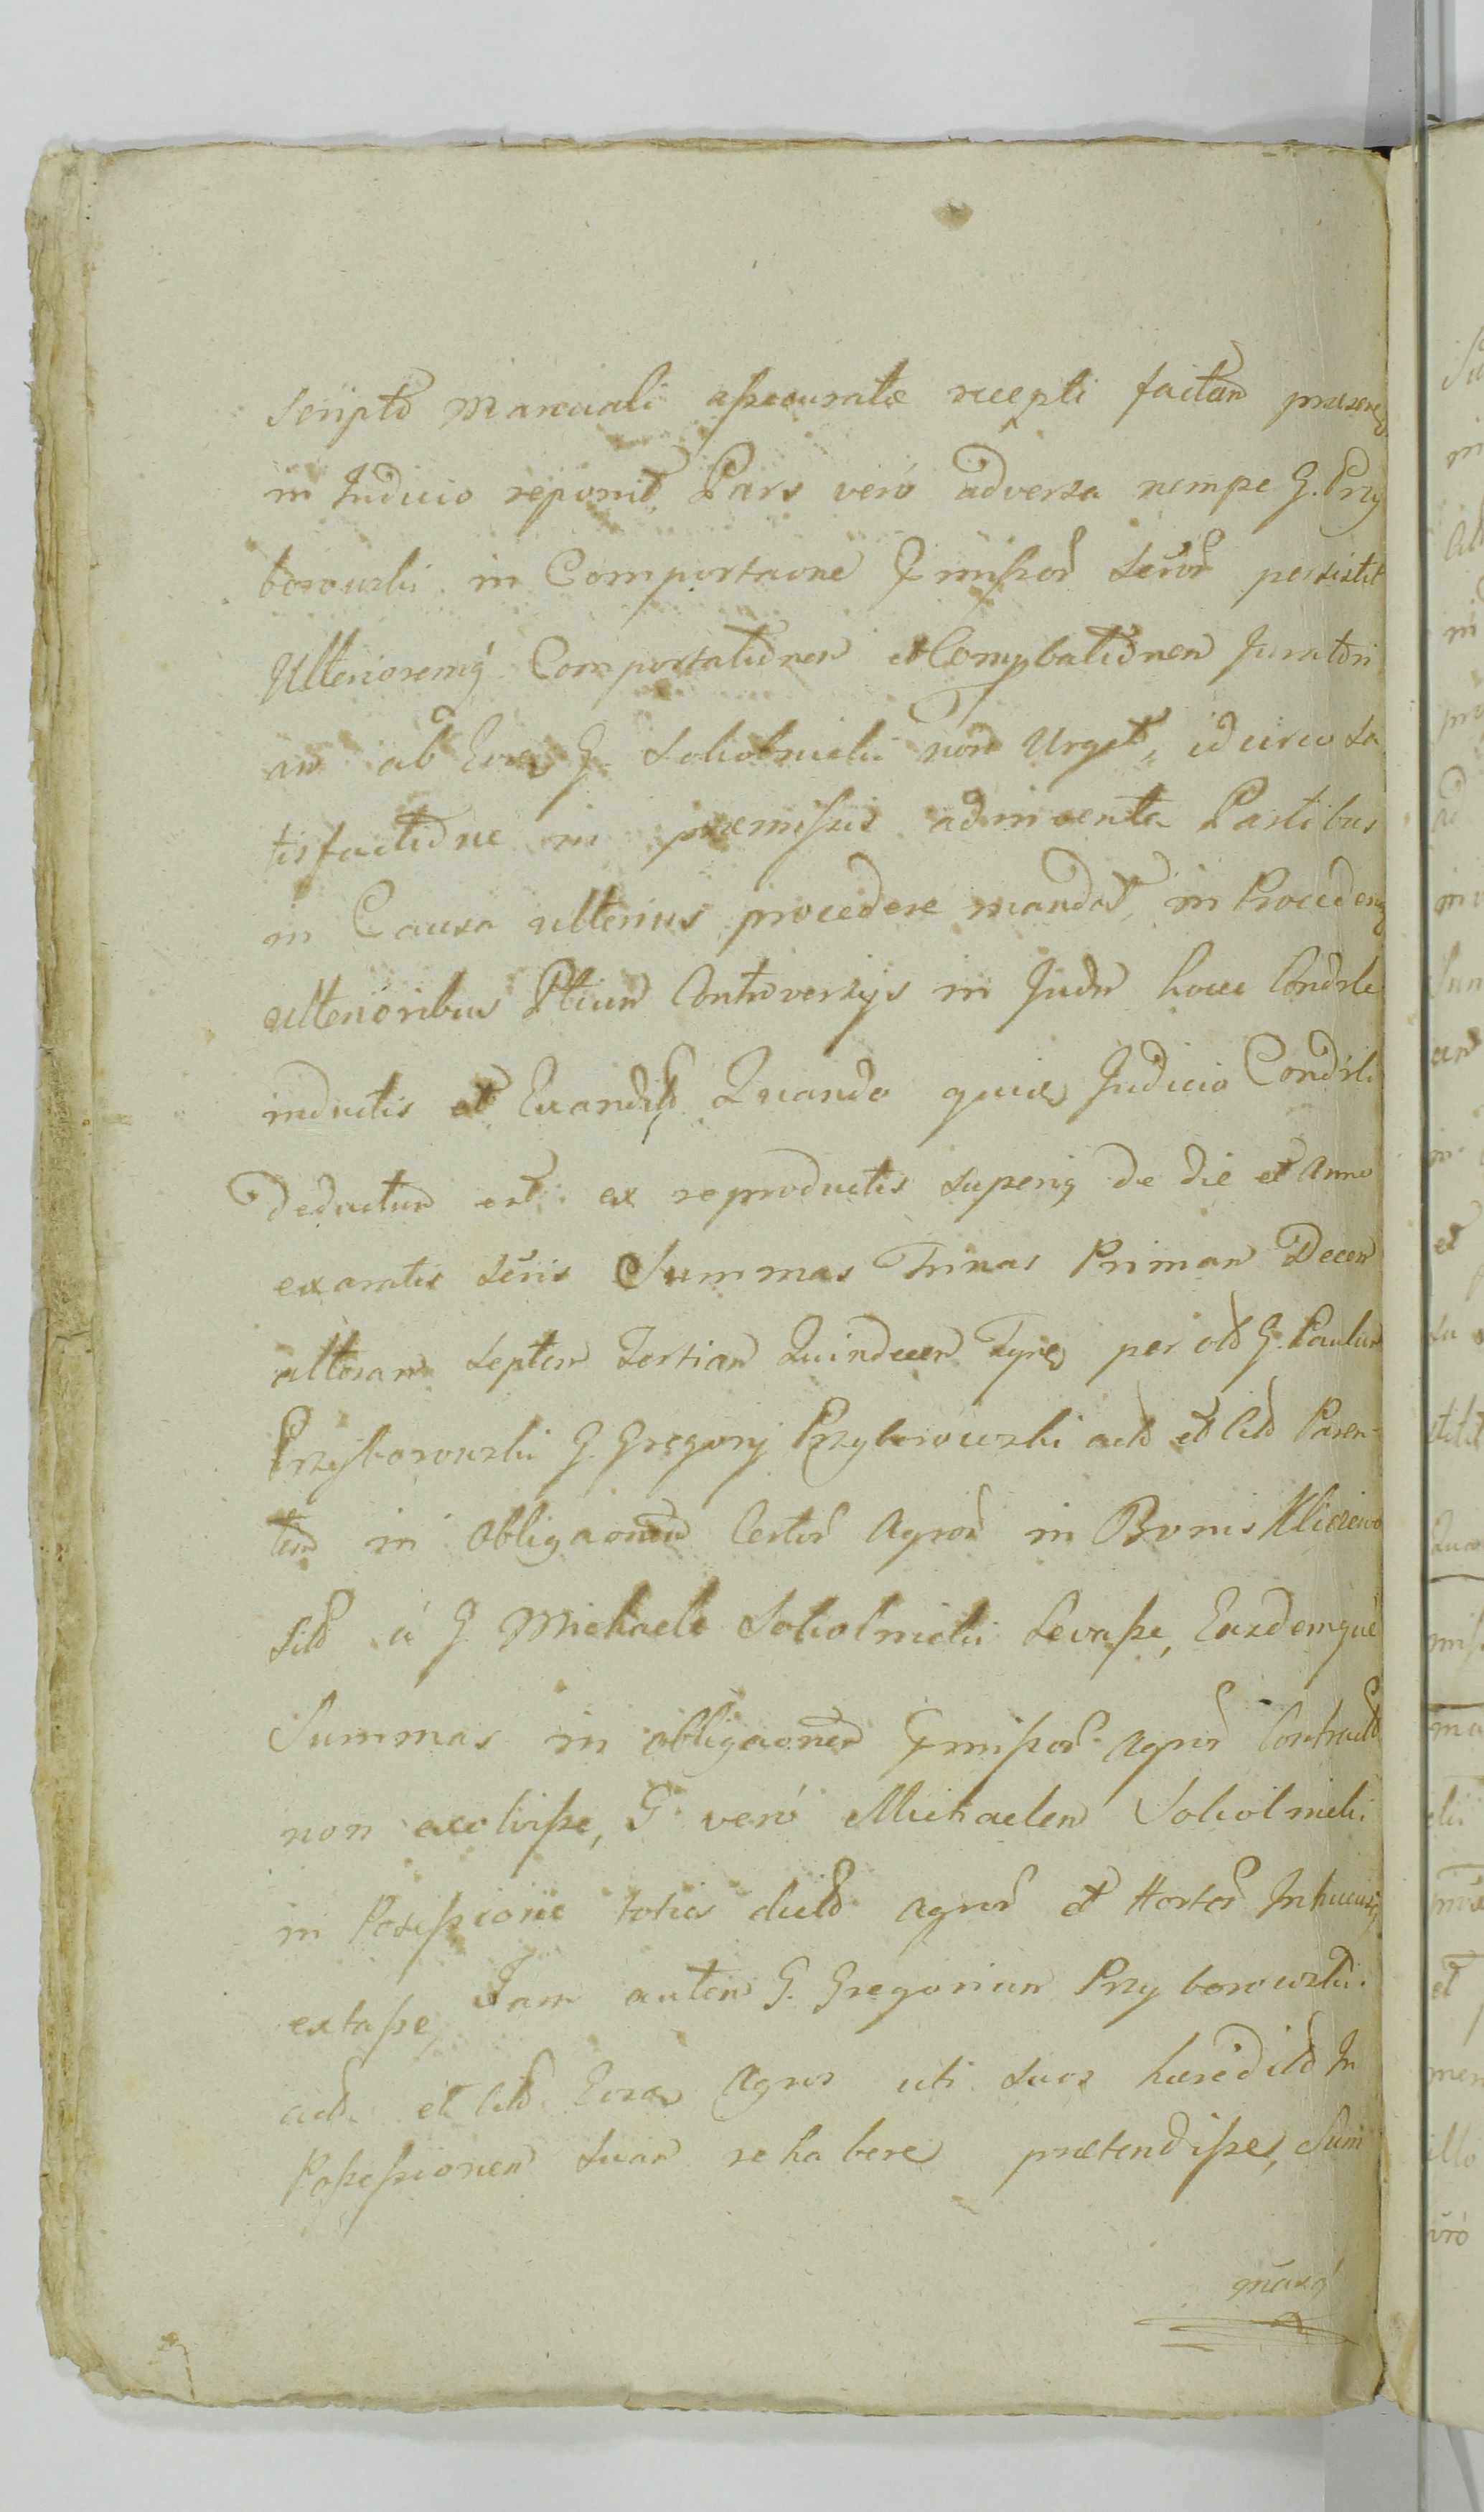 scripto Manuali assecuratæ recepti factam præsens
in Judicio reponit, Pars verò adversa nempe G. Przy
borowski in Comportaone Præmissor Lrar persistit
Ulterioremq Comportationem et Comprobationem Juratori
am ab Eodem G. Sokolnicki non Urget, idcirco sa
tisfactione in præmissis adinventa Partibus
in Causa ulterius procedere mandat, in Procedenq
ulterioribus Ptium Controversijs in Judo hocce Condrli
inductis et Exandis Quando quidem Judicio Condrli
deductum est ex reproductis superiq de die et Anno
exaratis Lris Summas Trinas Primam Decem
alteram Septem Tertiam Quindecem Tynf per olim G. Paulum
Przyborowski G. Gregorij Przyborowski actd et Citd Paren-
tem in obligaonem Certor Agror in Bonis Kliczewo
sitd à G. Michaele Sokolnicki Levasse, Easdemque
Summas in obligaonem Præmissor Agror Contractd
non exolvisse, G. verò Michaelem Sokolnicki
in Possessione toties dictd Agror et Hortor Inhucusq
extasse, Jam autem G. Gregorium Przyborowski
actd et Citd Eosdem Agros uti suos hæreditd In
Possessionem suam rehabere prætendisse, Sum
masq